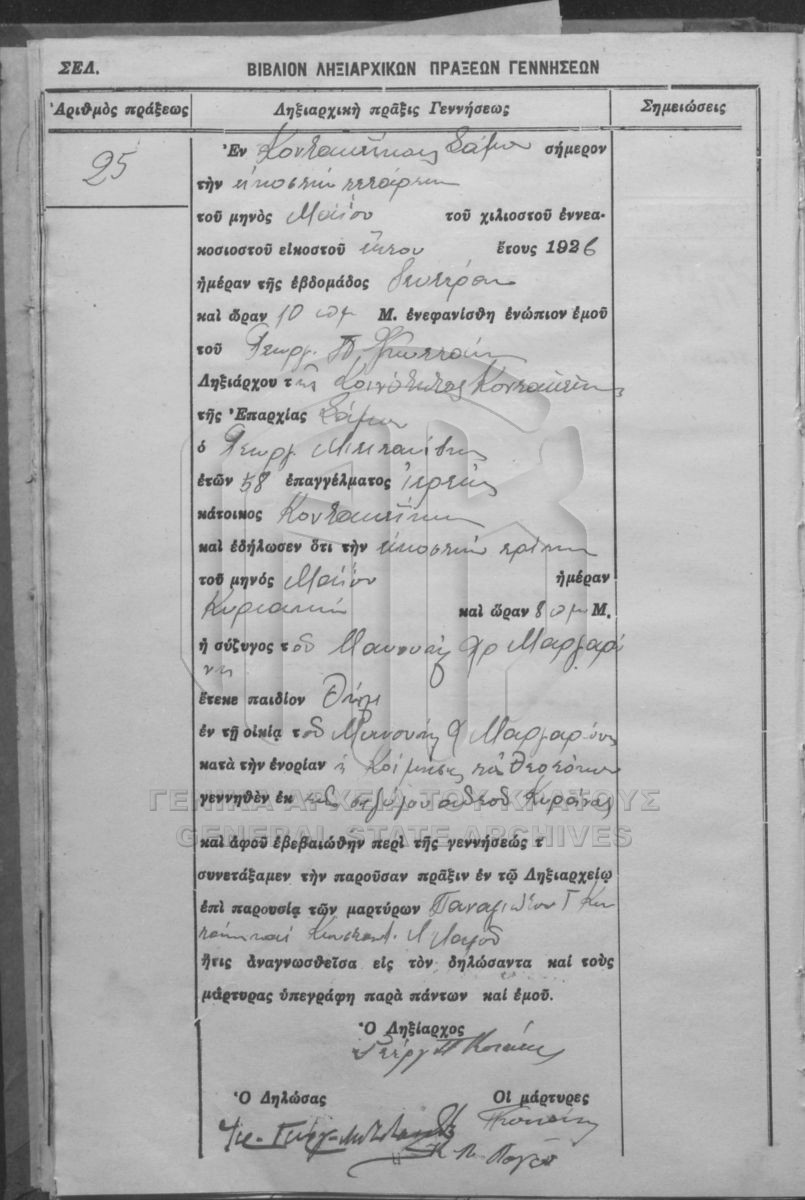 ΣΕΛ. ΒΙΒΛΙΟΝ ΛΗΞΙΑΡΧΙΚΩΝ ΠΡΑΞΕΩΝ ΓΕΝΝΗΣΕΩΝ
Ἀριθμὸς πράξεως Ληξιαρχικὴ πρᾶξις Γεννήσεως Σημειώσεις
25
Ἐν Σάμου σήμερον
τὴν εἰκοστὴν τετάρτην
τοῦ μηνὸς Μαΐου τοῦ χιλιοστοῦ ἐννεα-
κοσιοστοῦ εἰκοστοῦ ἕκτου ἔτους 1926
ἡμέραν τῆς ἑβδομάδος Δευτέραν
καὶ ὥραν 10 πμ Μ. ἐνεφανίσθη ἐνώπιον ἐμοῦ
τοῦ Γεωργ. Π.
Ληξιάρχου τῆς Κοινότητος
τῆς Ἐπαρχίας Σάμου
ὁ Γεωργ.
ἐτῶν 58 ἐπαγγέλματος Ἱερεὺς
κάτοικος
καὶ ἐδήλωσεν ὅτι τὴν εἰκοστὴν τρίτην
τοῦ μηνός Μαΐου ἡμέραν
Κυριακὴν καὶ ὥραν 8 πμ Μ.
ἡ σύζυγος τοῦ Μανουὴλ Μαργαρώ
νη
ἔτεκε παιδίον Θῆλυ
ἐν τῇ οἰκίᾳ τοῦ Μανουὴλ Μαργαρώνη
κατὰ τὴν ἐνορίαν ἡ Κοίμησις τῆς Θεοτόκου
γεννηθὲν ἐκ τῆς συζύγου αὐτοῦ
ΓΕΝΙΚΑ ΑΡΧΕΙΑ ΤΟΥ ΚΡΑΤΟΥΣ
GENERAL STATE ARCHIVES
καὶ ἀφοῦ ἐβεβαιώθην περὶ τῆς γεννήσεώς τ
συνετάξαμεν τὴν παροῦσαν πρᾶξιν ἐν τῷ Ληξιαρχείῳ
ἐπὶ παρουσίᾳ τῶν μαρτύρων Παναγιώτου Γ
καὶ Κωνσταντ.
ἥτις ἀναγνωσθεῖσα εἰς τὸν δηλώσαντα καὶ τοὺς
μάρτυρας ὑπεγράφη παρὰ πάντων καὶ ἐμοῦ.
Ὁ Ληξίαρχος
Γεώργ Π
Ὁ Δηλώσας Οἱ μάρτυρες